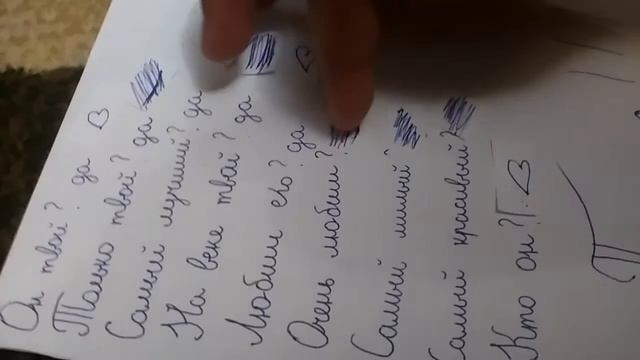 Он твой? да ♡
Только твой? да
Самый лучший? да
На веке твой? да
Любиш его? да ♡
Очень любиш?
Самый милый
Самый красивый?
Кто он? Г. ♡